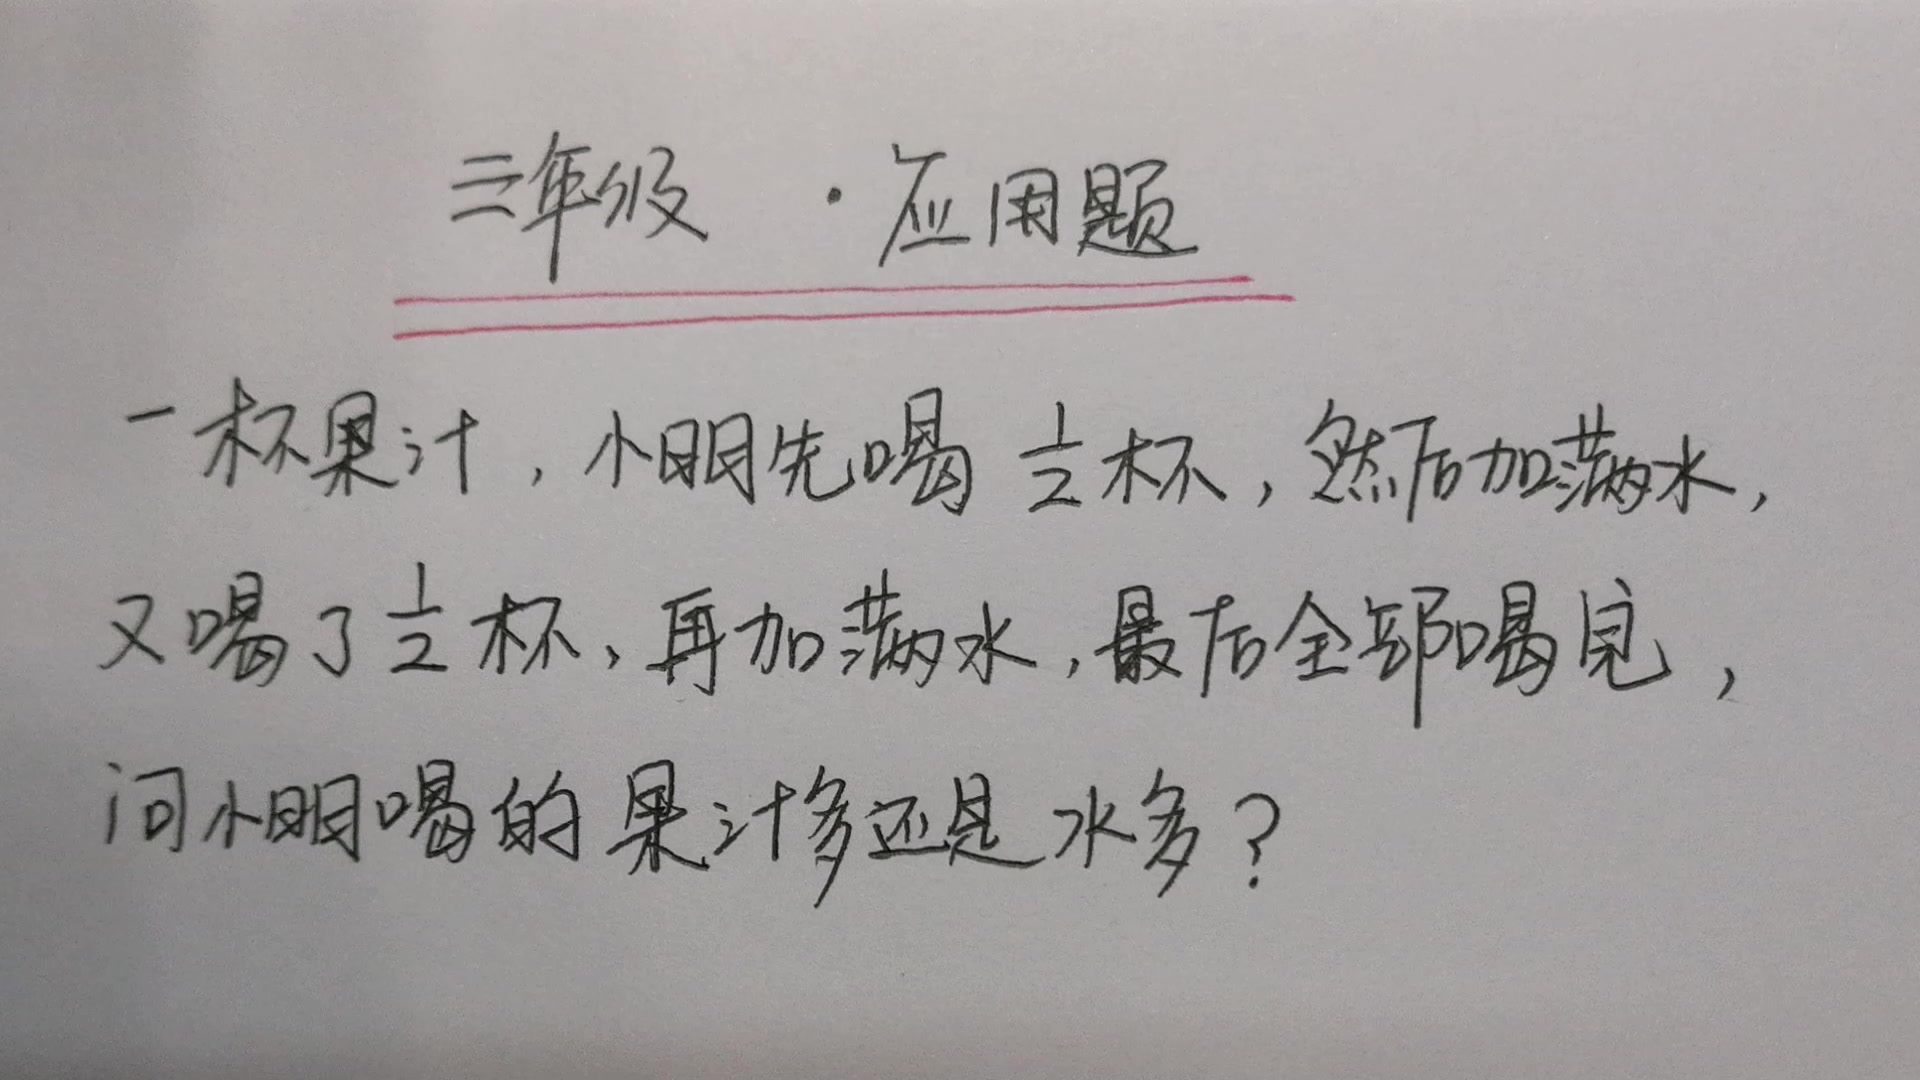 三年级 · 应用题
一杯果汁，小明先喝 1/2 杯，然后加满水，
又喝了 1/2 杯，再加满水，最后全部喝完，
问小明喝的果汁多还是水多？